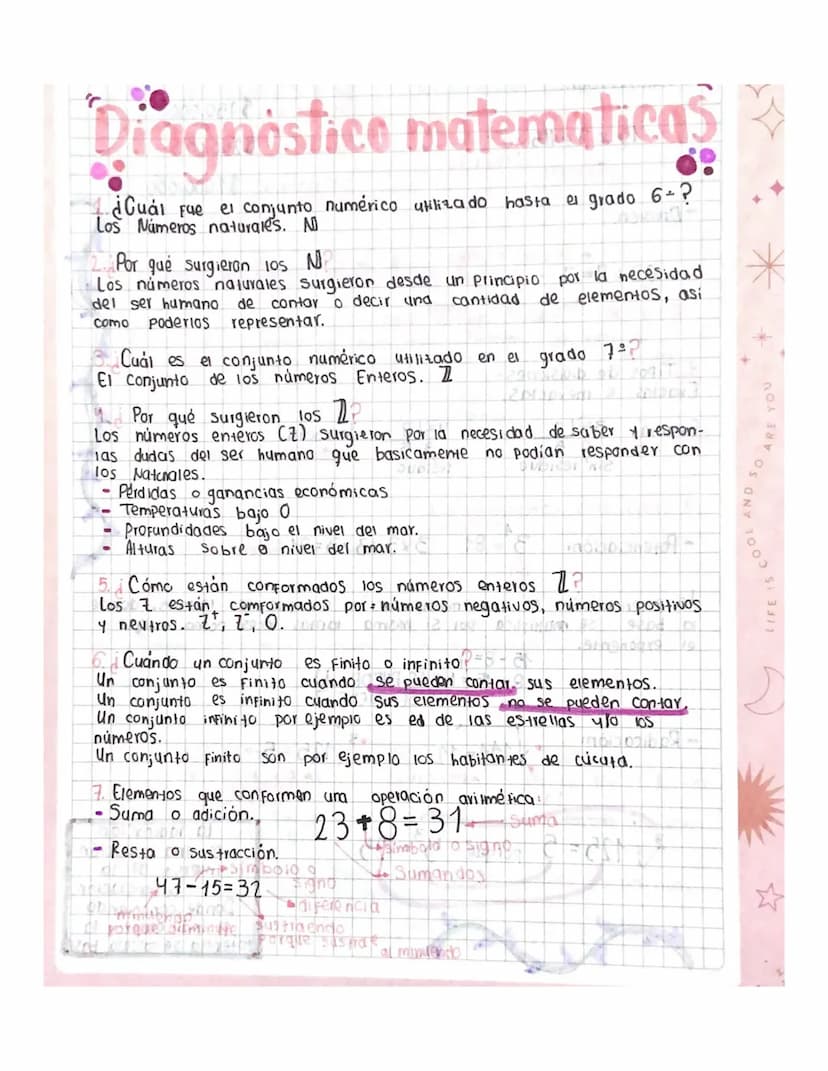 Diagnóstico matematicas
1. ¿Cuál fue el conjunto numérico utilizado hasta el grado 6º?
Los Números naturales. ℕ
2. ¿Por qué surgieron los ℕ?
Los números naturales surgieron desde un principio por la necesidad
del ser humano de contar o decir una cantidad de elementos, asi
como poderlos representar.
3. ¿Cuál es el conjunto numérico utilizado en el grado 7º?
El Conjunto de los números Enteros. ℤ
4. ¿Por qué surgieron los ℤ?
Los números enteros (Z) surgieron por la necesidad de saber y respon-
las dudas del ser humano que basicamente no podían responder con
los Naturales.
- Pérdidas o ganancias económicas
- Temperaturas bajo 0
- Profundidades bajo el nivel del mar.
- Alturas sobre e nivel del mar.
5. ¿Cómo están conformados los números enteros ℤ?
Los Z están comformados por: números negativos, números positivos
y neutros. Z⁺, Z⁻, 0.
6. ¿Cuándo un conjunto es finito o infinito?
Un conjunto es finito cuando se pueden contar sus elementos.
Un conjunto es infinito cuando sus elementos no se pueden contar.
Un conjunto infinito por ejemplo es el de las estrellas y/o los
números.
Un conjunto finito són por ejemplo los habitantes de cúcuta.
7. Elementos que conforman una operación aritmética:
- Suma o adición.
23 + 8 = 31 Suma
símbolo o signo
Sumandos
- Resta o sustracción.
símbolo o
signo
47 - 15 = 32
diferencia
porque
sustraendo
porque
al minuendo
LIFE IS COOL AND SO ARE YOU